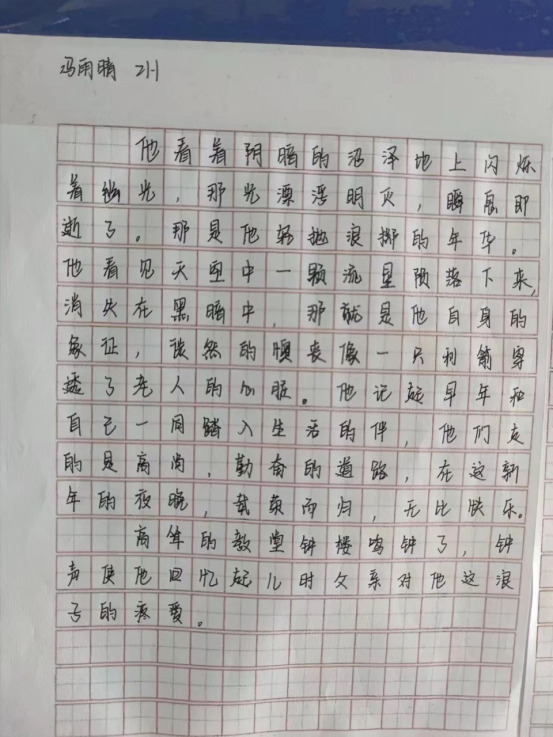 冯雨晴
他看着阴暗的沼泽地上闪烁
着幽光，那光漂浮明灭，瞬息即
逝了。那是他轻抛浪掷的年华。
他看见天空中一颗流星陨落下来，
消失在黑暗中，那就是他自身的
象征，徒然的懊丧像一只利箭穿
透了老人的心脏。他记起早年和
自己一同踏入生活的伴，他们走
的是高尚，勤奋的道路，在这新
年的夜晚，载誉而归，无比快乐。
高耸的教堂钟楼鸣钟了，钟
声使他回忆起儿时父亲对他这浪
子的疼爱。